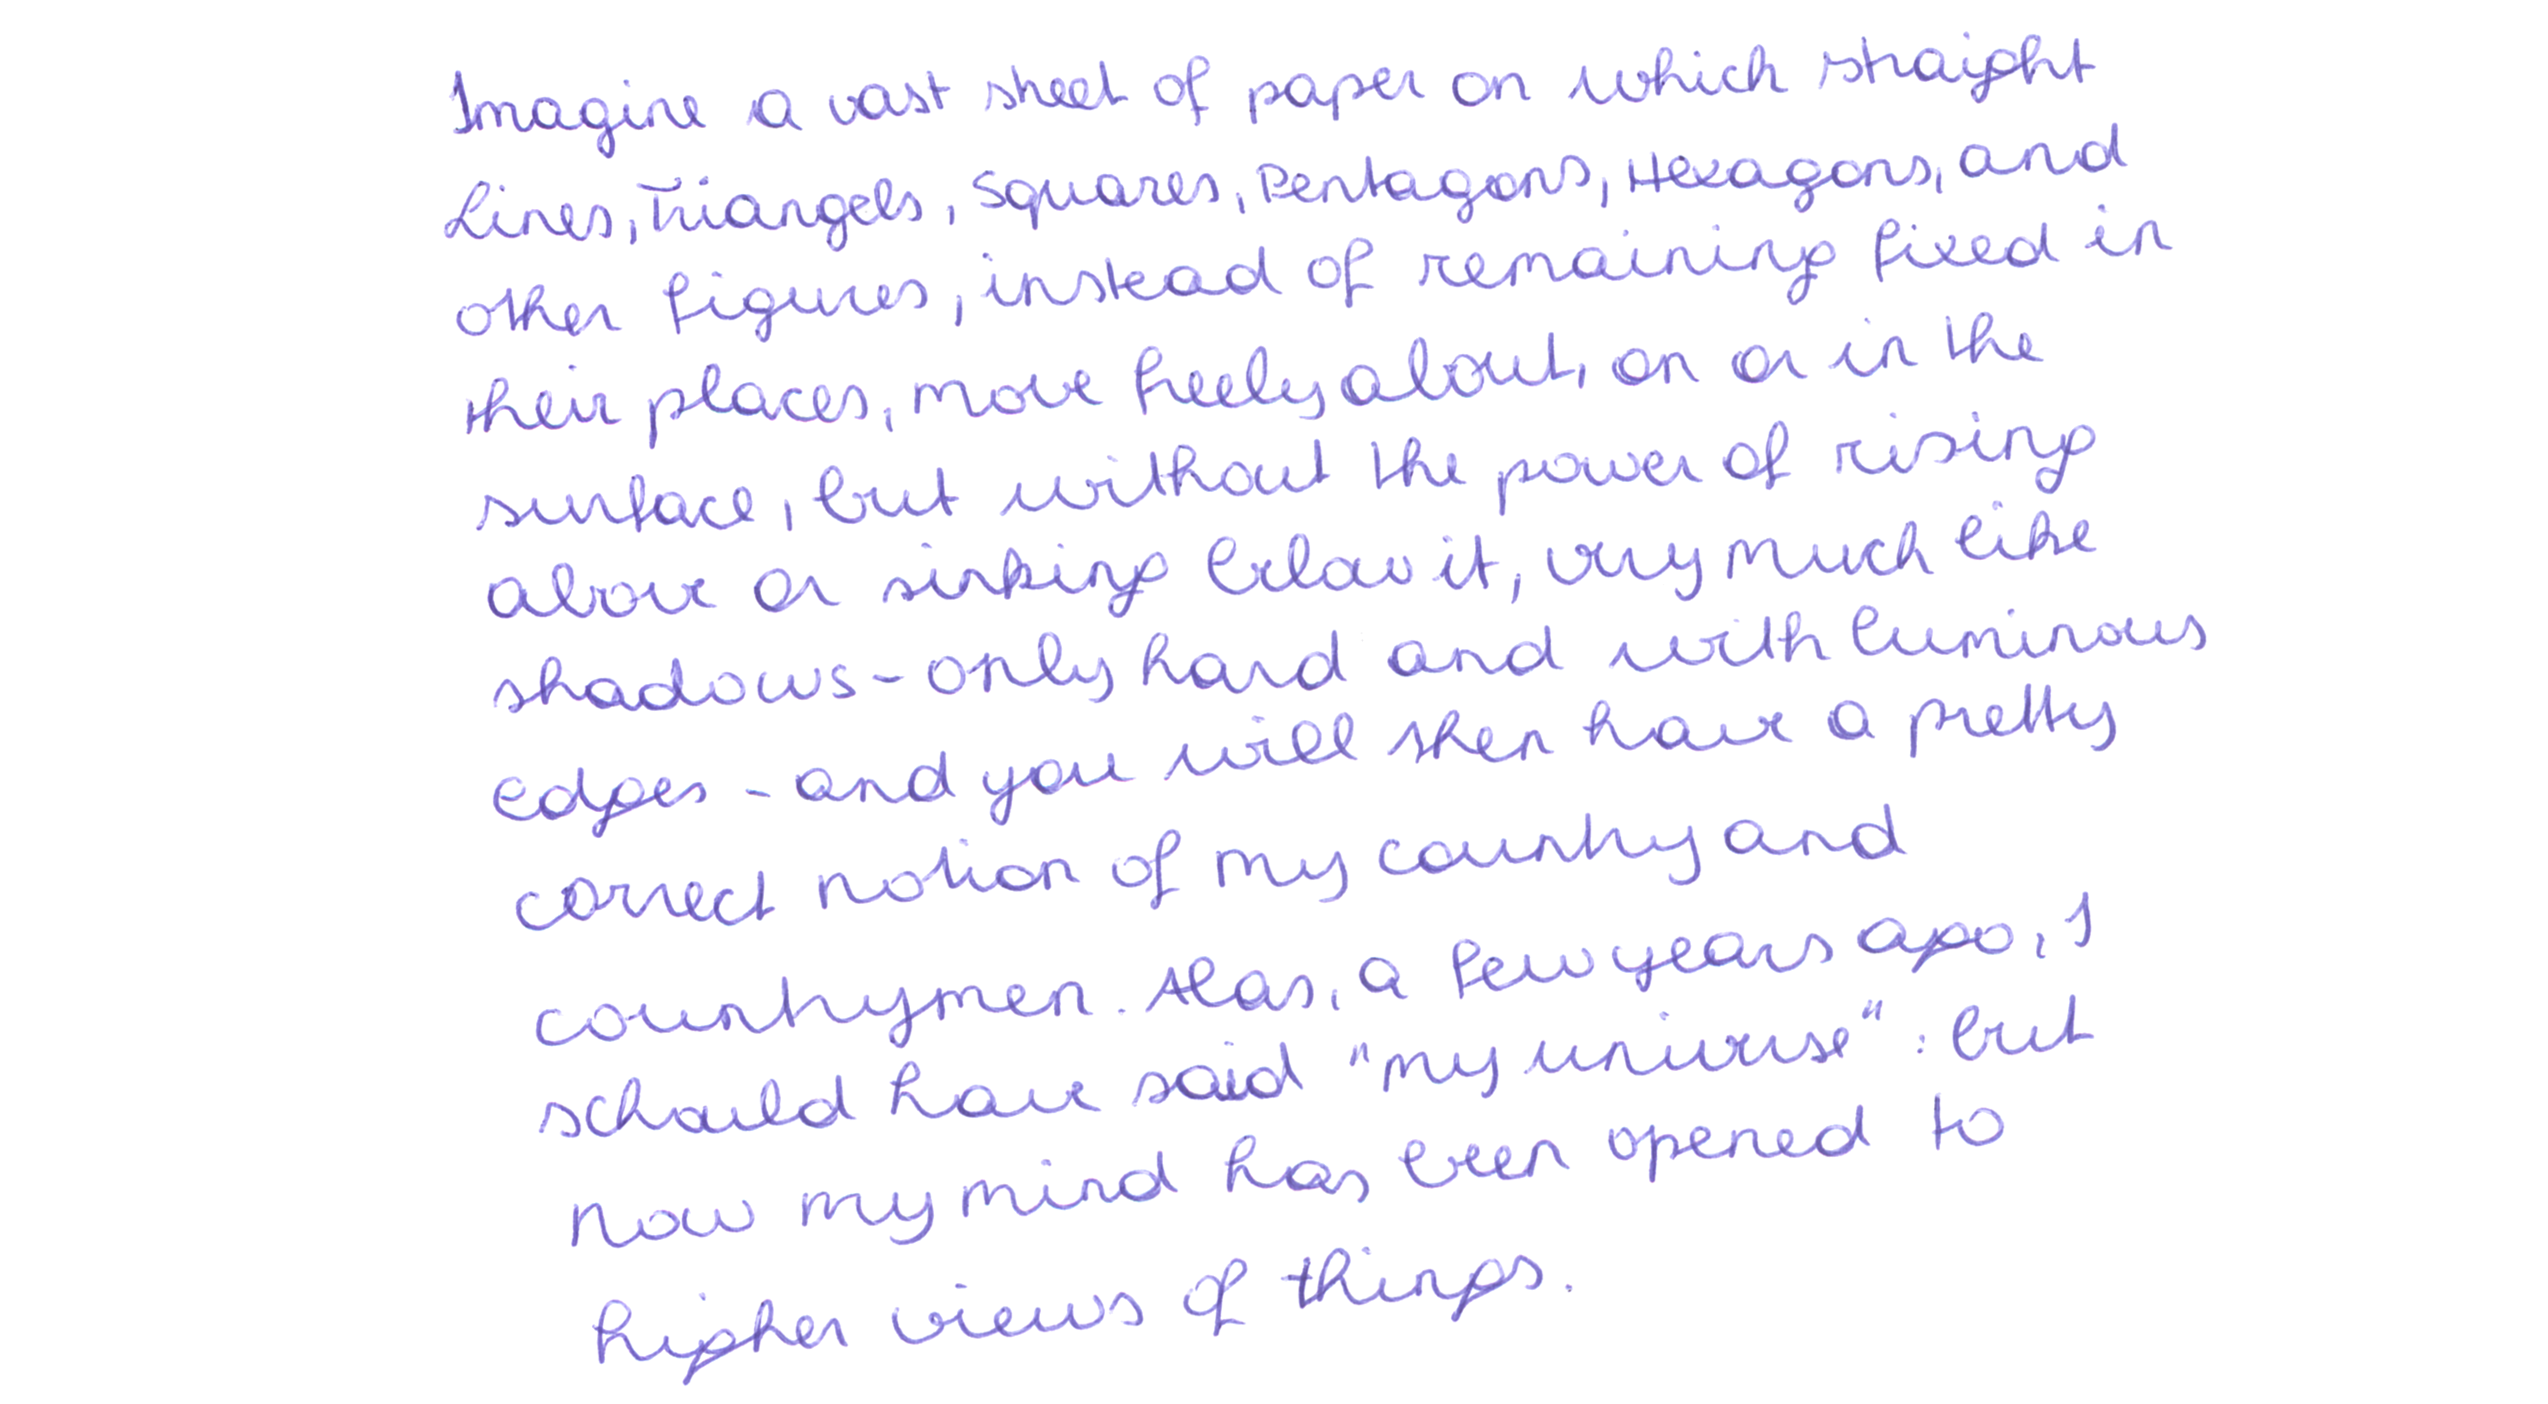 Imagine a vast sheet of paper on which straight
Lines, Triangels, Squares, Pentagons, Hexagons, and
other figures, instead of remaining fixed in
their places, move freely about, on or in the
surface, but without the power of rising
above or sinking below it, very much like
shadows - only hard and with luminous
edges - and you will then have a pretty
correct notion of my country and
countrymen. Alas, a few years ago, I
schould have said "my universe": but
now my mind has been opened to
higher views of things.